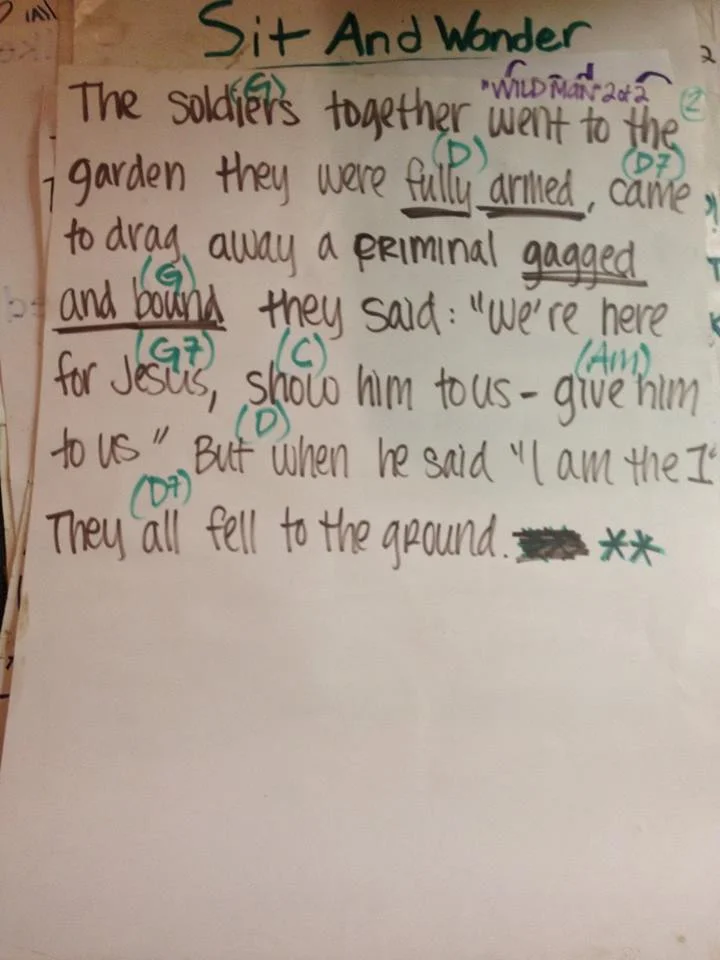 Sit And Wonder
"WILD MaN" 2 of 2
(G)
2
The soldiers together went to the
(D) (D7)
garden they were fully armed, came
to drag away a CRIMINAL gagged
(G)
and bound they said: "we're here
(G7) (C) (Am)
for Jesus, show him to us - give him
(D)
to us" But when he said "I am the I"
(D7)
They all fell to the ground. **